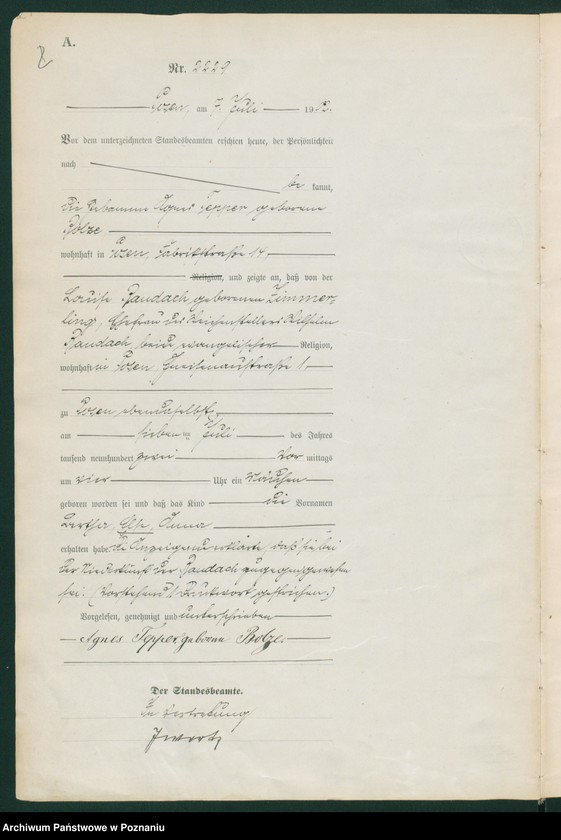 A.
Nr. 2229
Posen, am 7. Juli 1902.
Vor dem unterzeichneten Standesbeamten erschien heute, der Persönlichkeit
nach
be kannt,
die Hebamme Agnes Tepper geborene
Bolze
wohnhaft in Posen, Fabrikstraße 14
Religion, und zeigte an, daß von der
Louise Raudach geborenen Zimmer-
ling, Ehefrau des Weichenstellers Wilhelm
Raudach, beide evangelischer Religion,
wohnhaft in Posen, Gneisenaustraße 1
zu Posen ebendaselbst
am sieben ten Juli des Jahres
tausend neunhundert zwei Vor mittags
um vier Uhr ein Mädchen
geboren worden sei und daß das Kind die Vornamen
Bertha, Else, Anna
erhalten habe. Die Anzeigende erklärte, daß sie bei
der Niederkunft der Raudach zugegen gewesen
sei. (Vorstehend 1 Druckwort gestrichen.)
Vorgelesen, genehmigt und unterschrieben
Agnes Tepper, geborene Bolze.
Der Standesbeamte.
In Vertretung
Archiwum Państwowe w Poznaniu